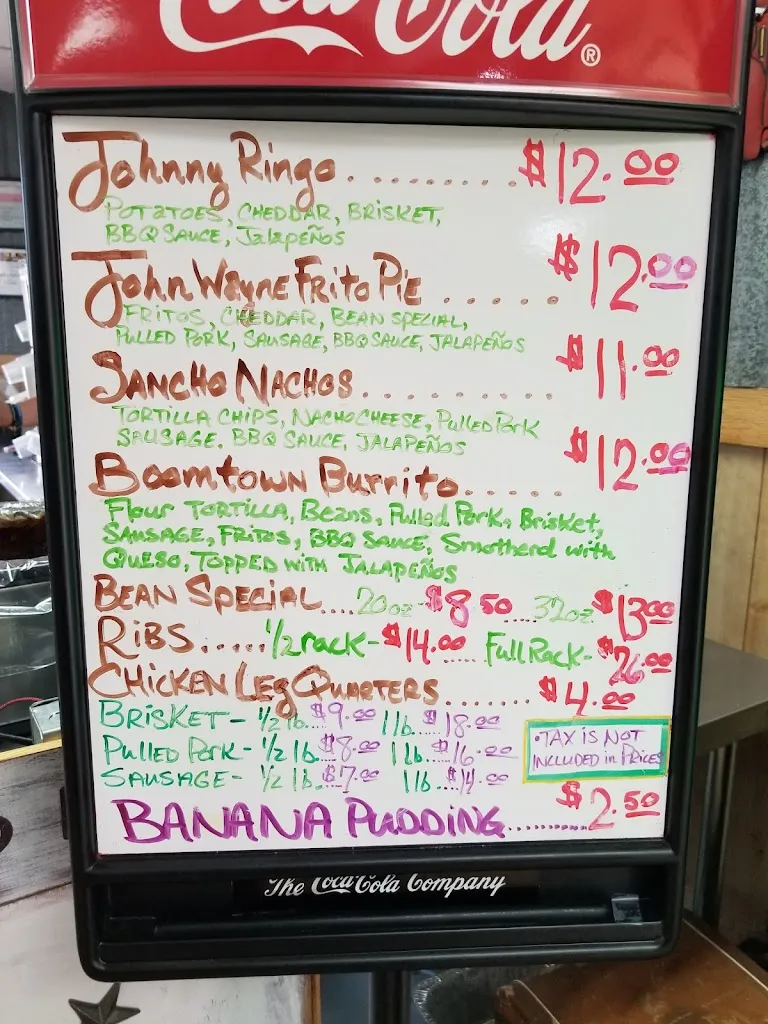 Coca-Cola®
Johnny Ringo.............$12.00
POTATOES, CHEDDAR, BRISKET,
BBQ SAUCE, Jalapeños
John Wayne Frito Pie......$12.00
FRITOS, CHEDDAR, BEAN SPECIAL,
PULLED PORK, SAUSAGE, BBQ SAUCE, JALAPEÑOS
SANCHO NACHOS..........$11.00
TORTILLA CHIPS, NACHO CHEESE, Pulled Pork
SAUSAGE, BBQ SAUCE, JALAPEÑOS
Boomtown Burrito......$12.00
Flour TORTILLA, Beans, Pulled Pork, Brisket,
SAUSAGE, FRITOS, BBQ SAUCE, Smotherd with
QUESO, TOPPED WITH JALAPEÑOS
BEAN SPECIAL....20oz-$8.50.....32oz $13.00
RIBS.....1/2 rack-$14.00.....Full Rack-$26.00
CHICKEN Leg QUARTERS........$4.00
BRISKET- 1/2 lb. $9.00 1lb. $18.00
Pulled Pork- 1/2 lb. $8.00 1 lb. $16.00
SAUSAGE- 1/2 lb. $7.00 1 lb. $14.00
•TAX IS NOT
INCLUDED in PRICES
BANANA PUDDING..........$2.50
The Coca-Cola Company